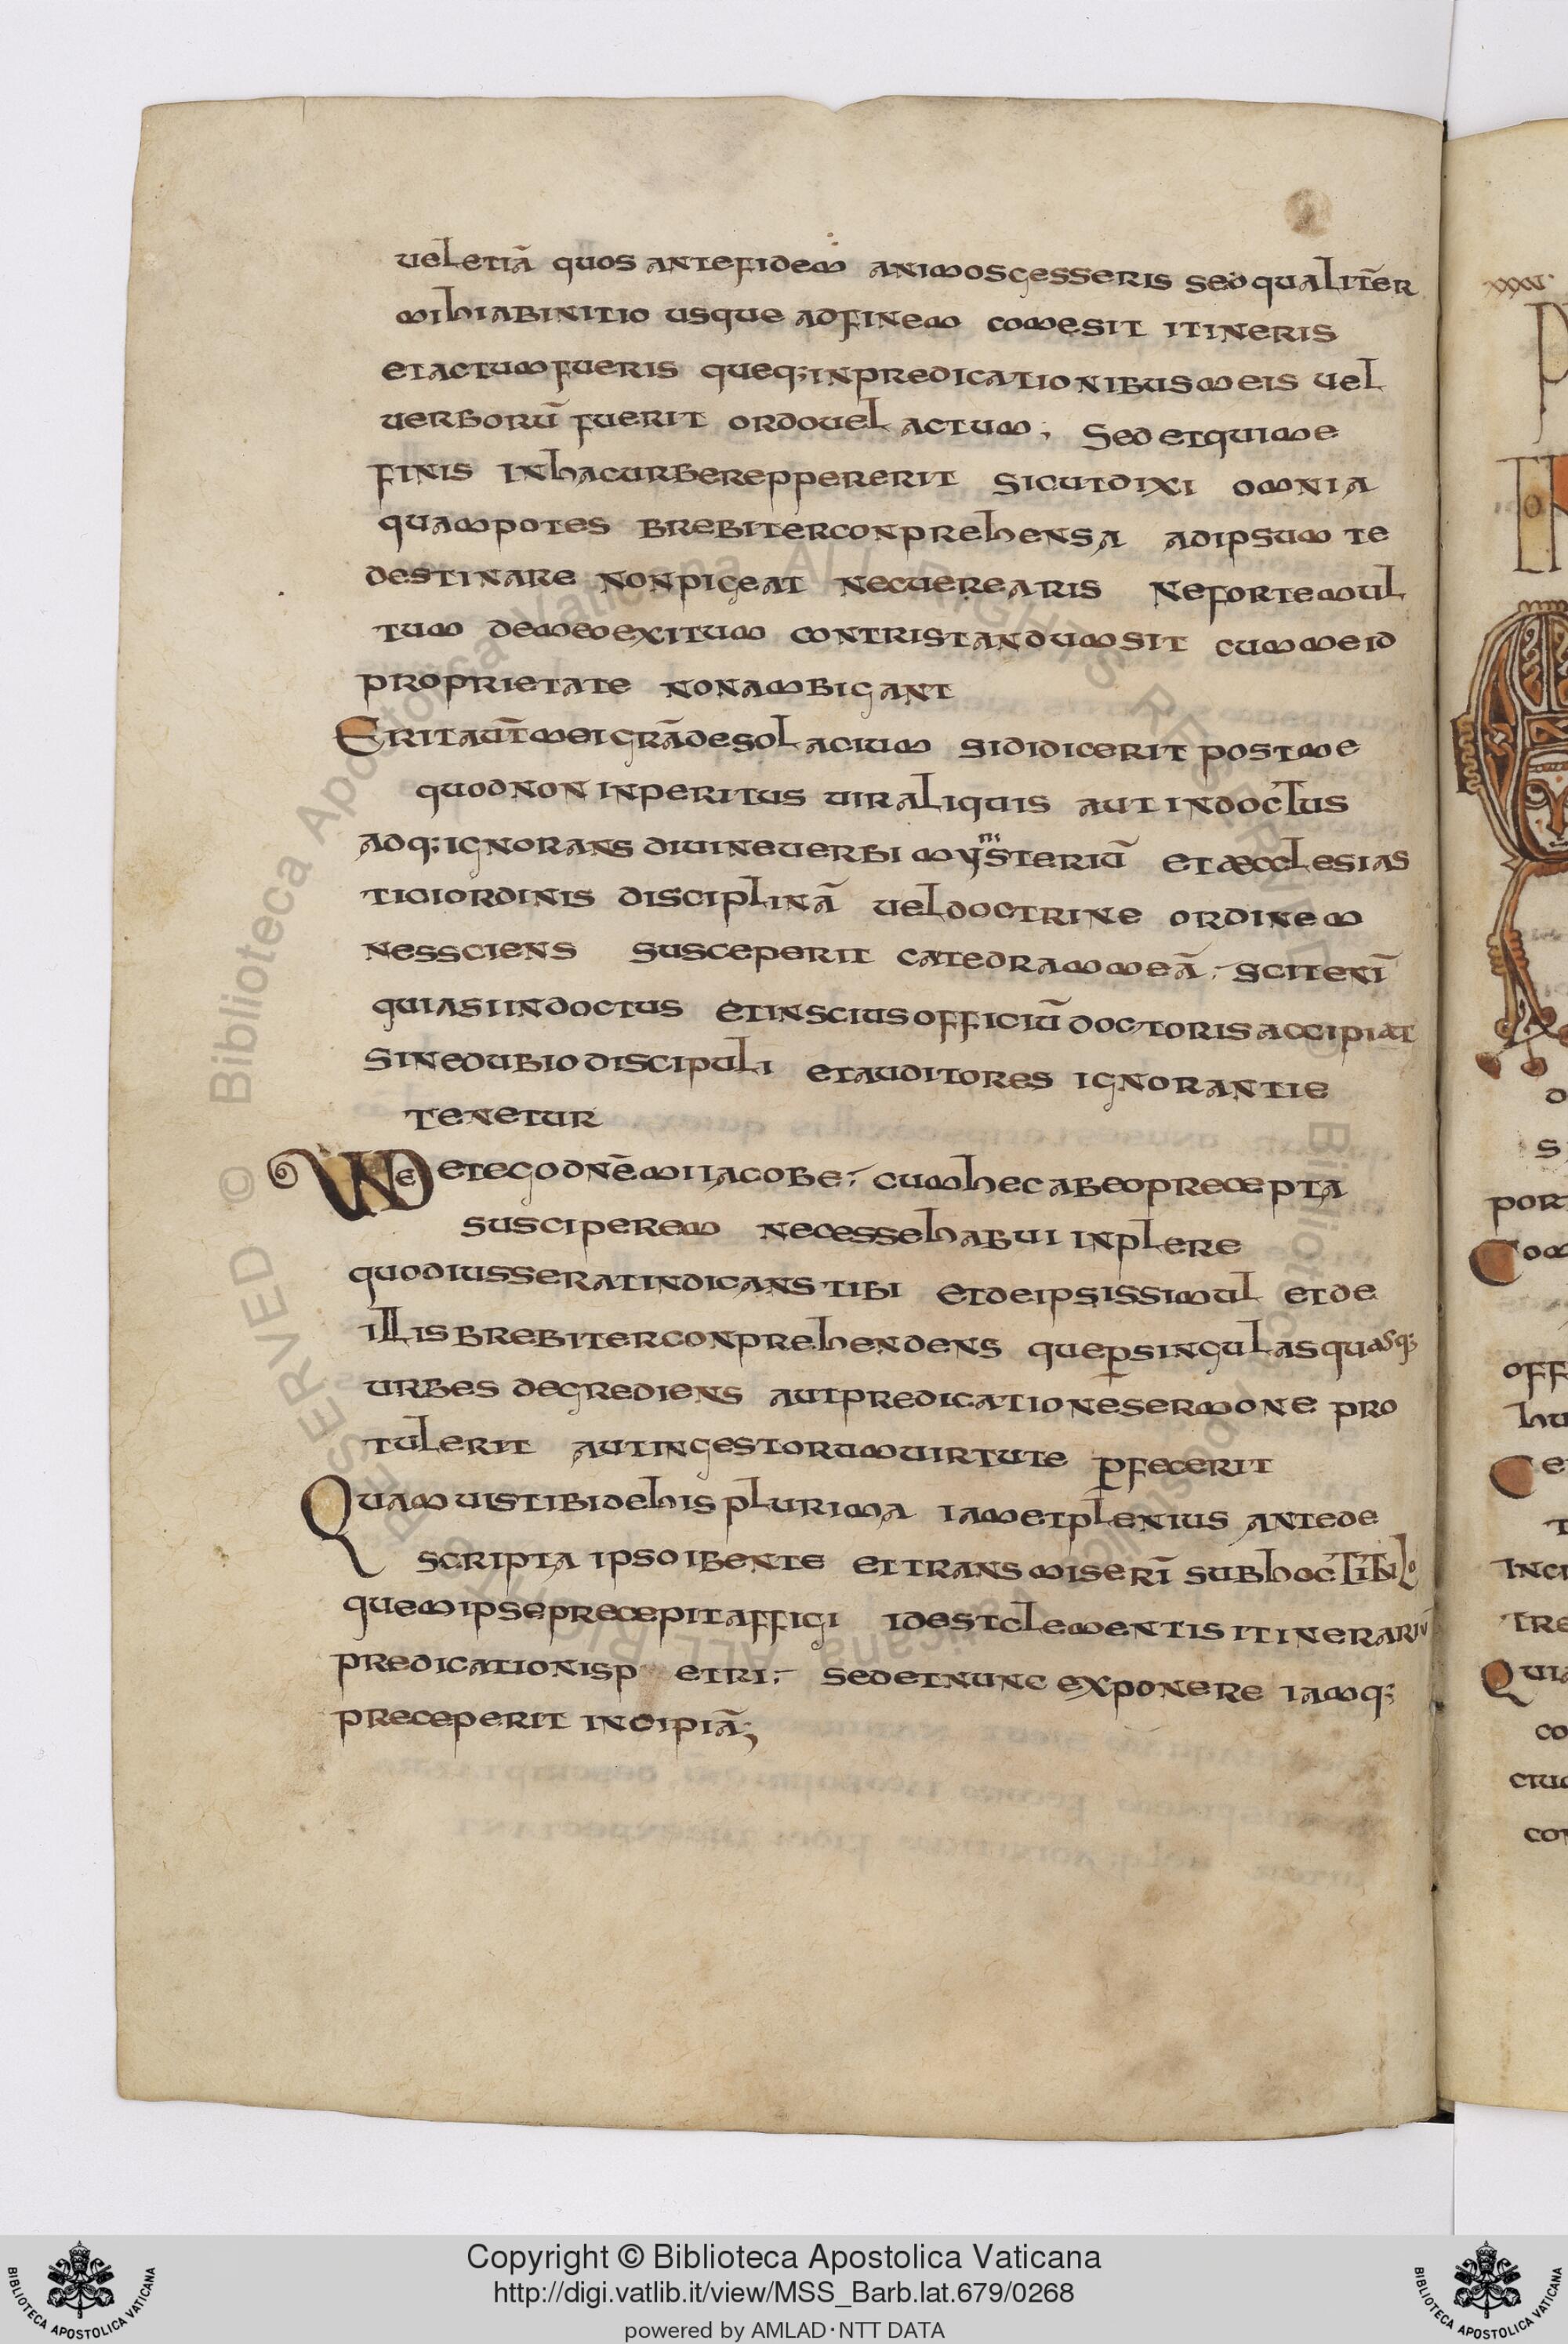 uel etiā quos ante fidem animos gesseris sed qualitēr
mihi ab initio usque ad finem comes it itineris
et actum fueris queq; in predicationibus meis uel
uerborū fuerit ordo uel actum; Sed et qui me
finis in hac urbe reppererit sicut dixi omnia
quam potes brebiter conprehensa ad ipsum te
destinare non pigeat nec uerearis Ne forte mul
tum de meo exitum contristandum sit cum me id
proprietate non ambigant
Erit aut̄ mei grāde solacium si didicerit post me
quod non inperitus uir aliquis aut indoctus
adq; ignorans diuine uerbi mysteriū et æcclesias
tici ordinis disciplinā uel doctrine ordinem
nessciens susceperit catedram meā; scit enī
quia si indoctus et inscius officiū doctoris accipiat
sine dubio discipuli et auditores ignorantie
tenetur
Unde et ego dnē mi iacobe; cum hec ab eo precepta
susciperem necesse habui inplere
quod iusserat indicans tibi et de ipsis simul et de
illis brebiter conprehendens que p̱ singulas quasq;
urbes degrediens aut predicatione sermone pro
tulerit aut in gestorum uirtute p̱fecerit
Quamuis tibi de his plurima iam et plenius ante de
scripta ipso ibente et transmiserī sub hoc titulo
quem ipse precepit affigi id est clementis itinerariū
predicationis p etri; sed et nunc exponere iamq;
preceperit incipiā;
xxxv
Copyright © Biblioteca Apostolica Vaticana
http://digi.vatlib.it/view/MSS_Barb.lat.679/0268
powered by AMLAD·NTT DATA